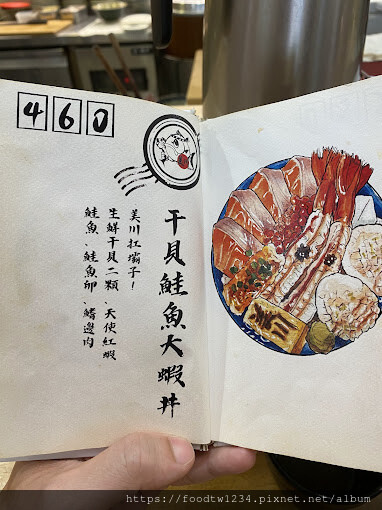 460
干貝鮭魚大蝦丼
美川扛壩子！
生鮮干貝二顆、天使紅蝦
鮭魚、鮭魚卵、鰭邊肉
美川
https://foodtw1234.pixnet.net/album